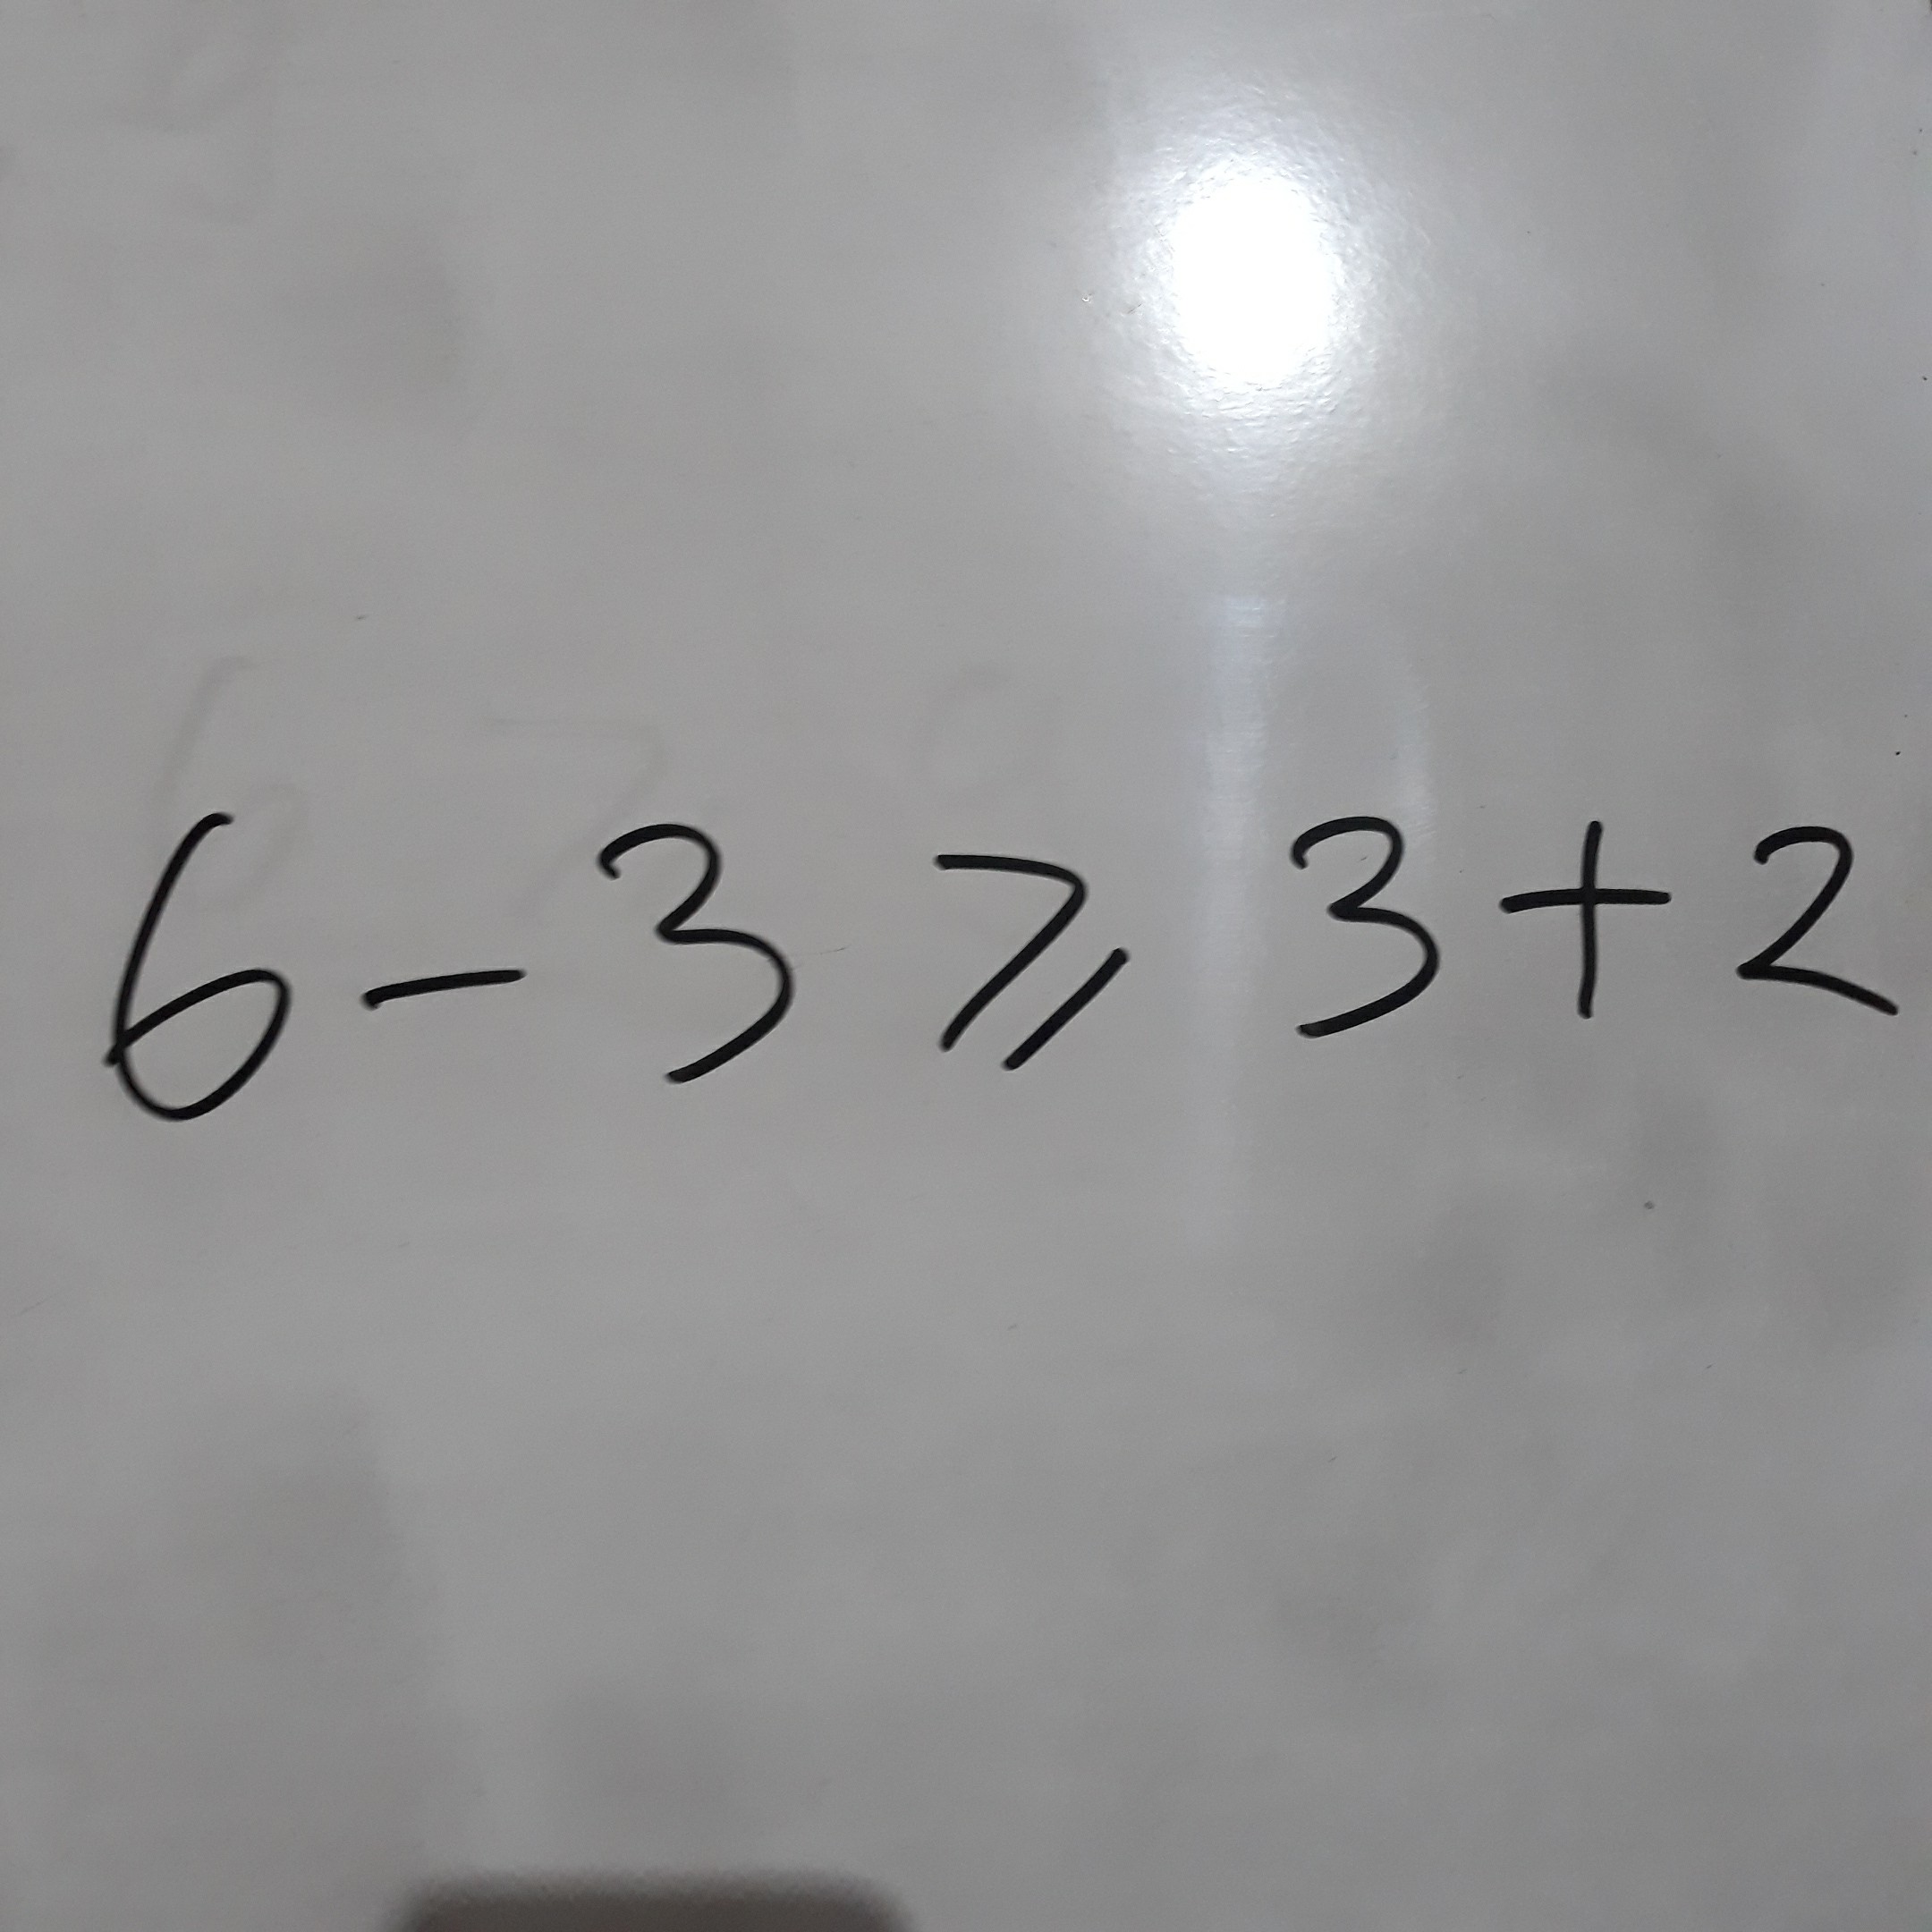 6 - 3 ⩾ 3 + 2